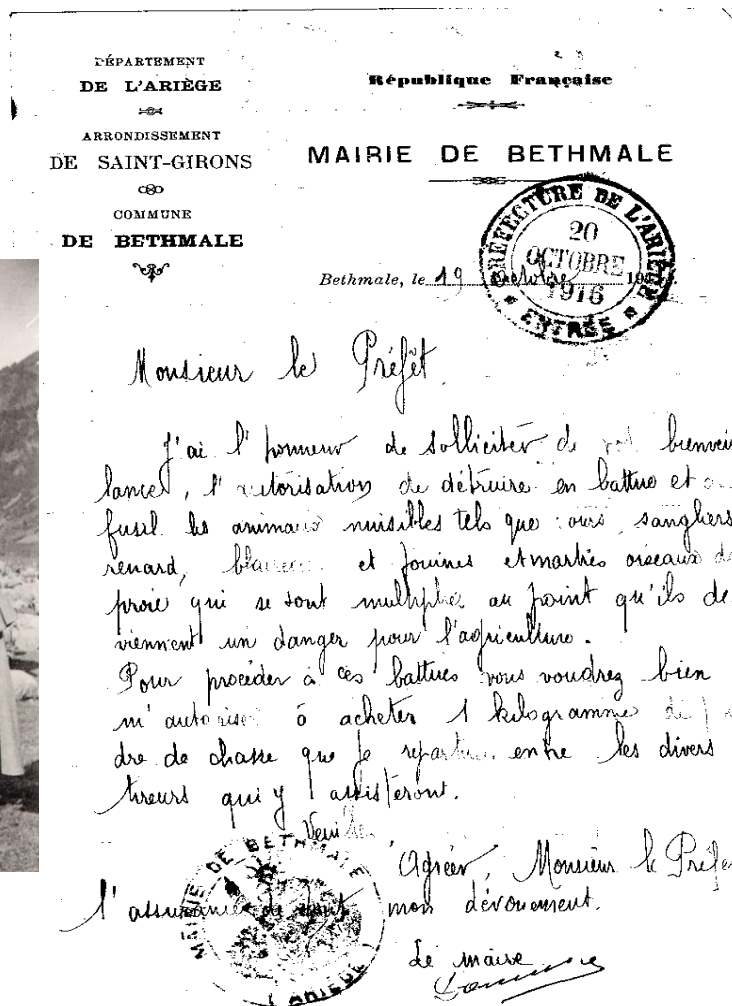 DÉPARTEMENT
DE L'ARIÈGE
ARRONDISSEMENT
DE SAINT-GIRONS
COMMUNE
DE BETHMALE
République Française
MAIRIE DE BETHMALE
PRÉFECTURE DE L'ARIÈGE
20
OCTOBRE
1916
ENTRÉE
Bethmale, le 19 octobre 19
Monsieur le Préfêt
J'ai l'honneur de solliciter de bienveil
lance, l'autorisation de détruire en battue et
fusil les animaux nuisibles tels que ours, sangliers
renard, et fouines et martres oiseaux de
proie qui se sont multipliés au point qu'ils de
viennent un danger pour l'agriculture.
Pour procéder à ces battues vous voudrez bien
m'autoriser à acheter 1 kilogramme de
dre de chasse que je entre les divers
tireurs qui y assisteront.
Agréer, Monsieur le Préfet
l'assurance de tout mon dévouement.
Le maire
MAIRIE DE BETHMALE
(ARIÈGE)